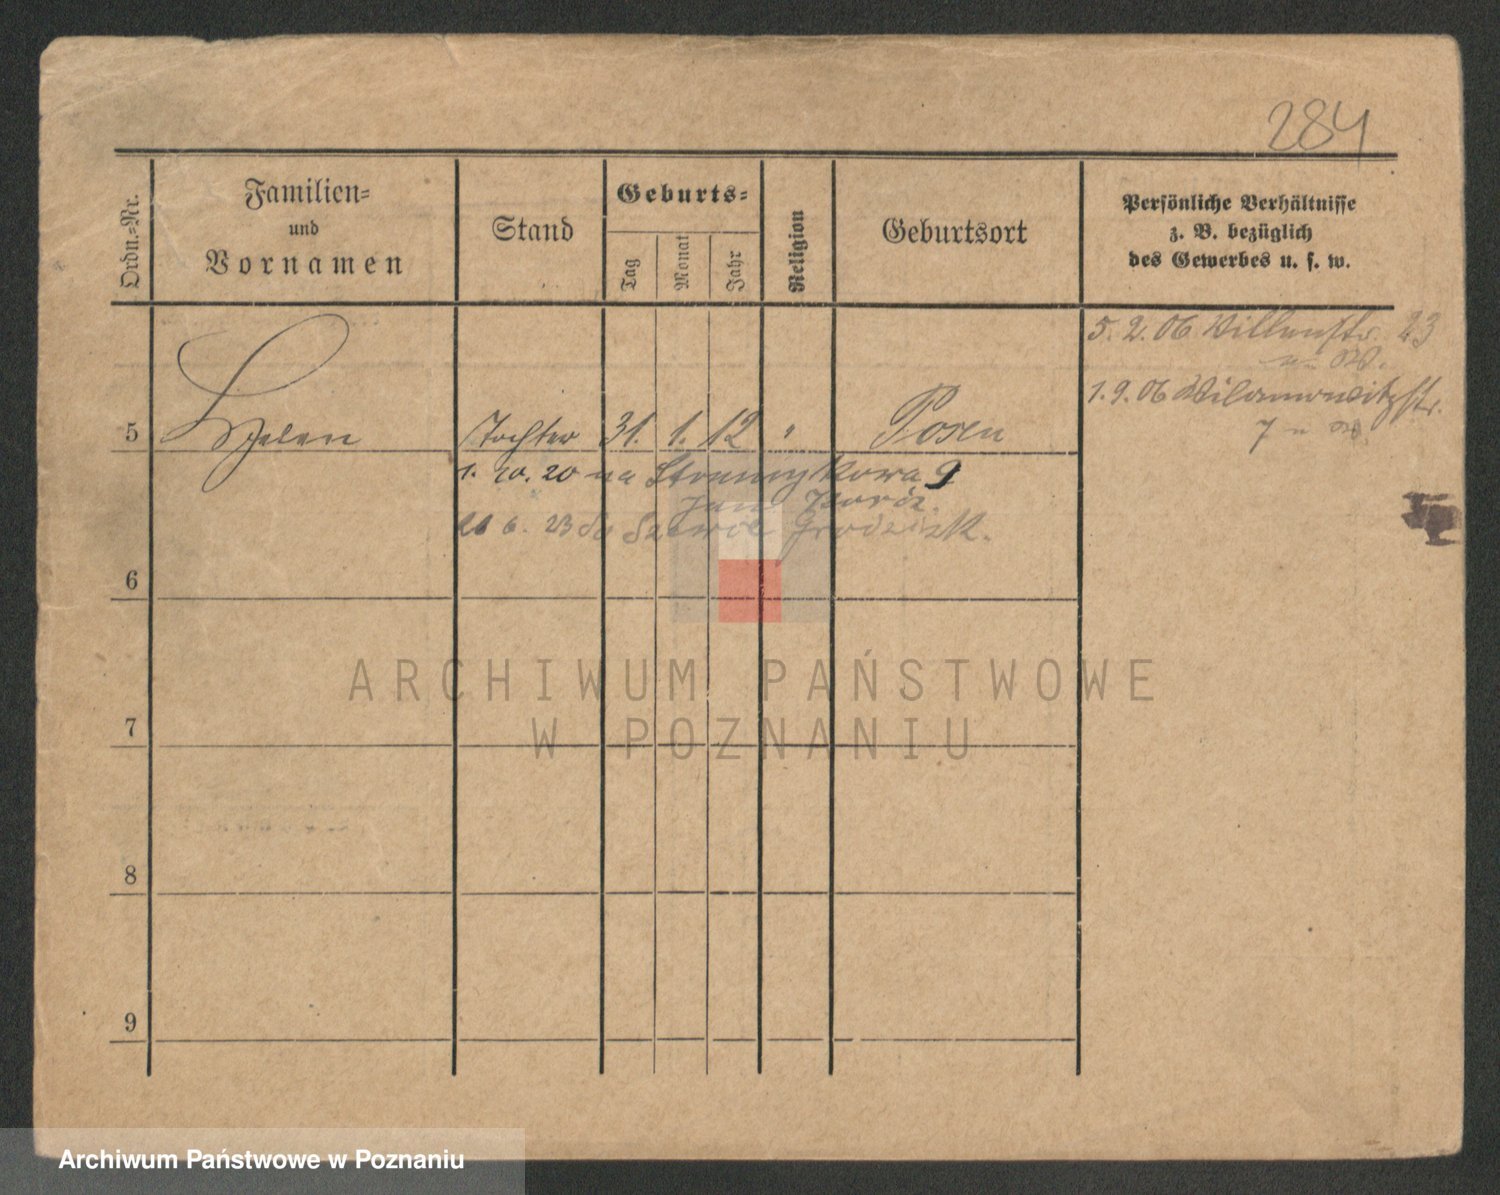 284
Ordn.-Nr.
Familien-
und
Vornamen
Stand
Geburts-
Tag
Monat
Jahr
Religion
Geburtsort
Persönliche Verhältnisse
z. B. bezüglich
des Gewerbes u. s. w.
5. 2. 06 Villenstr. 23
1. 9. 06 Wilamowitzstr.
7
5 Helen Tochter 31. 1. 12 " Posen
1. 10. 20 na 9
6. 23 Grodzisk.
6
7
8
9
ARCHIWUM PAŃSTWOWE
W POZNANIU
Archiwum Państwowe w Poznaniu